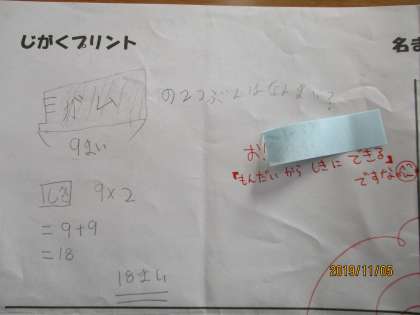 じがくプリント
名
ガム
の2つぶんはなんまい?
9まい
お!
『もんだいから しきに できる』
ですな
しき 9×2
=9+9
=18
18まい
2019/11/05